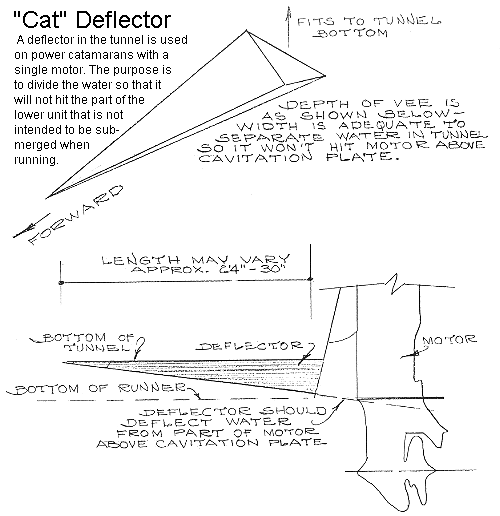 "Cat" Deflector
A deflector in the tunnel is used
on power catamarans with a
single motor. The purpose is
to divide the water so that it
will not hit the part of the
lower unit that is not
intended to be sub-
merged when
running.
FITS TO TUNNEL
BOTTOM
DEPTH OF VEE IS
AS SHOWN BELOW-
WIDTH IS ADEQUATE TO
SEPARATE WATER IN TUNNEL
SO IT WON'T HIT MOTOR ABOVE
CAVITATION PLATE.
FORWARD
LENGTH MAY VARY
APPROX. 24"-30"
BOTTOM OF
TUNNEL
DEFLECTOR
MOTOR
BOTTOM OF RUNNER
DEFLECTOR SHOULD
DEFLECT WATER
FROM PART OF MOTOR
ABOVE CAVITATION PLATE